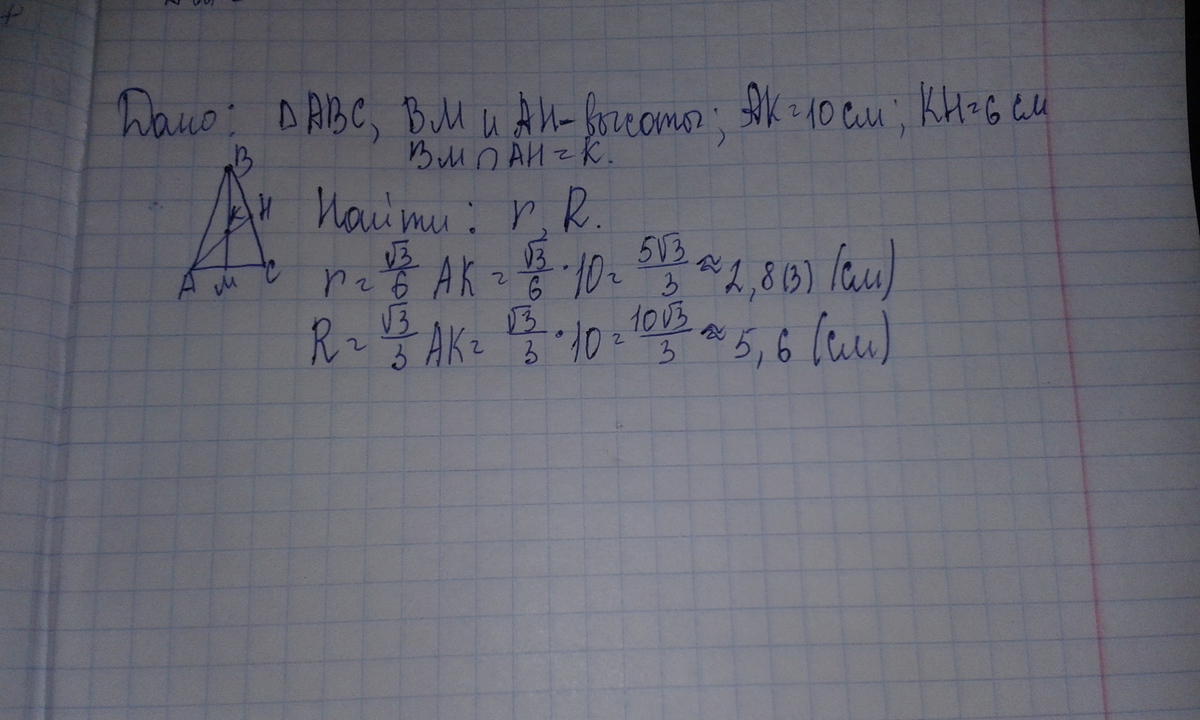 Дано: ΔABC, BM и AH-высоты; AK=10 см; KH=6 см
BM∩AH=K.
B
K H
A M C
Найти: r, R.
r=√3/6 AK=√3/6·10=5√3/3≈2,8(3) (см)
R=√3/3 AK=√3/3·10=10√3/3≈5,6 (см)